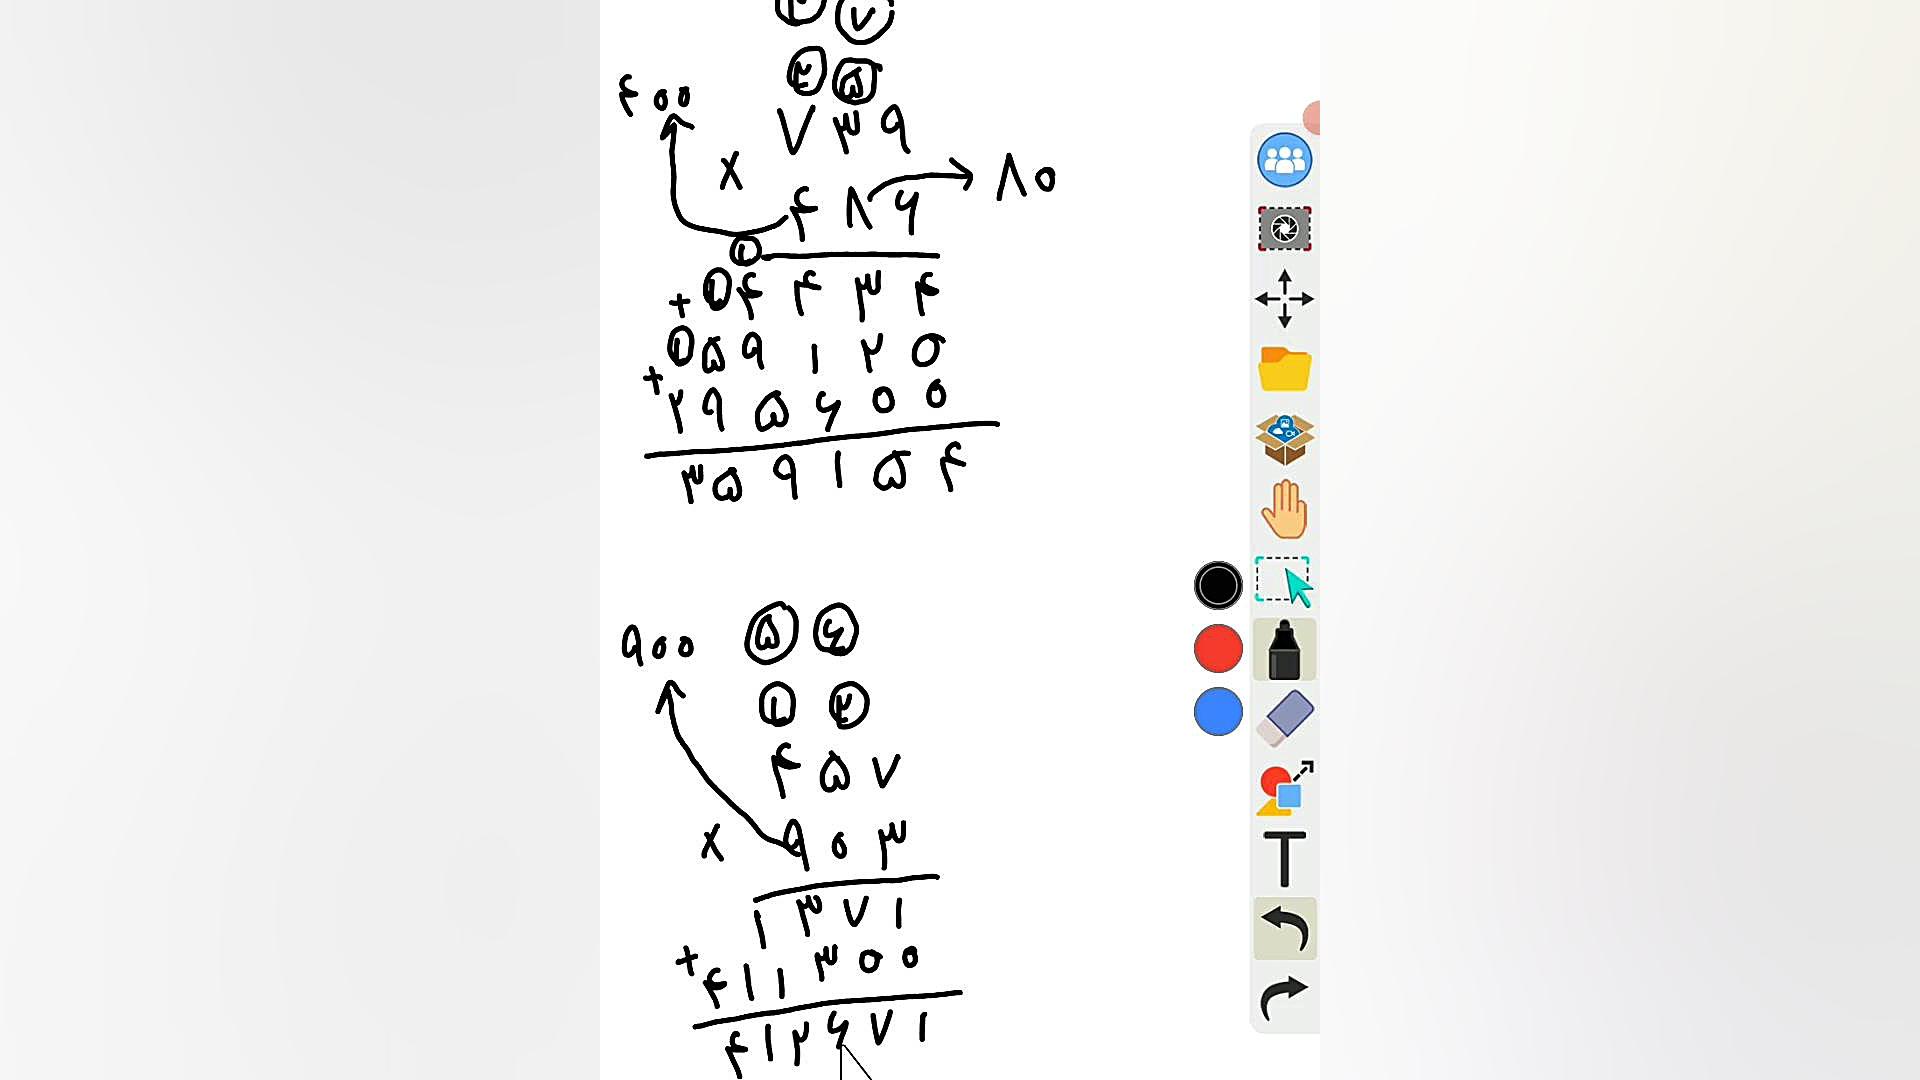 ۷
۲ ۵
۴۰۰
۷۳۹
×
۴۸۶
۸۰
۱
+ ۱ ۴۴۳۴
۱ ۵۹۱۲۰
+ ۲۹۵۶۰۰
۳۵۹۱۵۴
۹۰۰
۵ ۶
۱ ۲
۴۵۷
× ۹۰۳
۱۳۷۱
+ ۴۱۱۳۰۰
۴۱۲۶۷۱
T